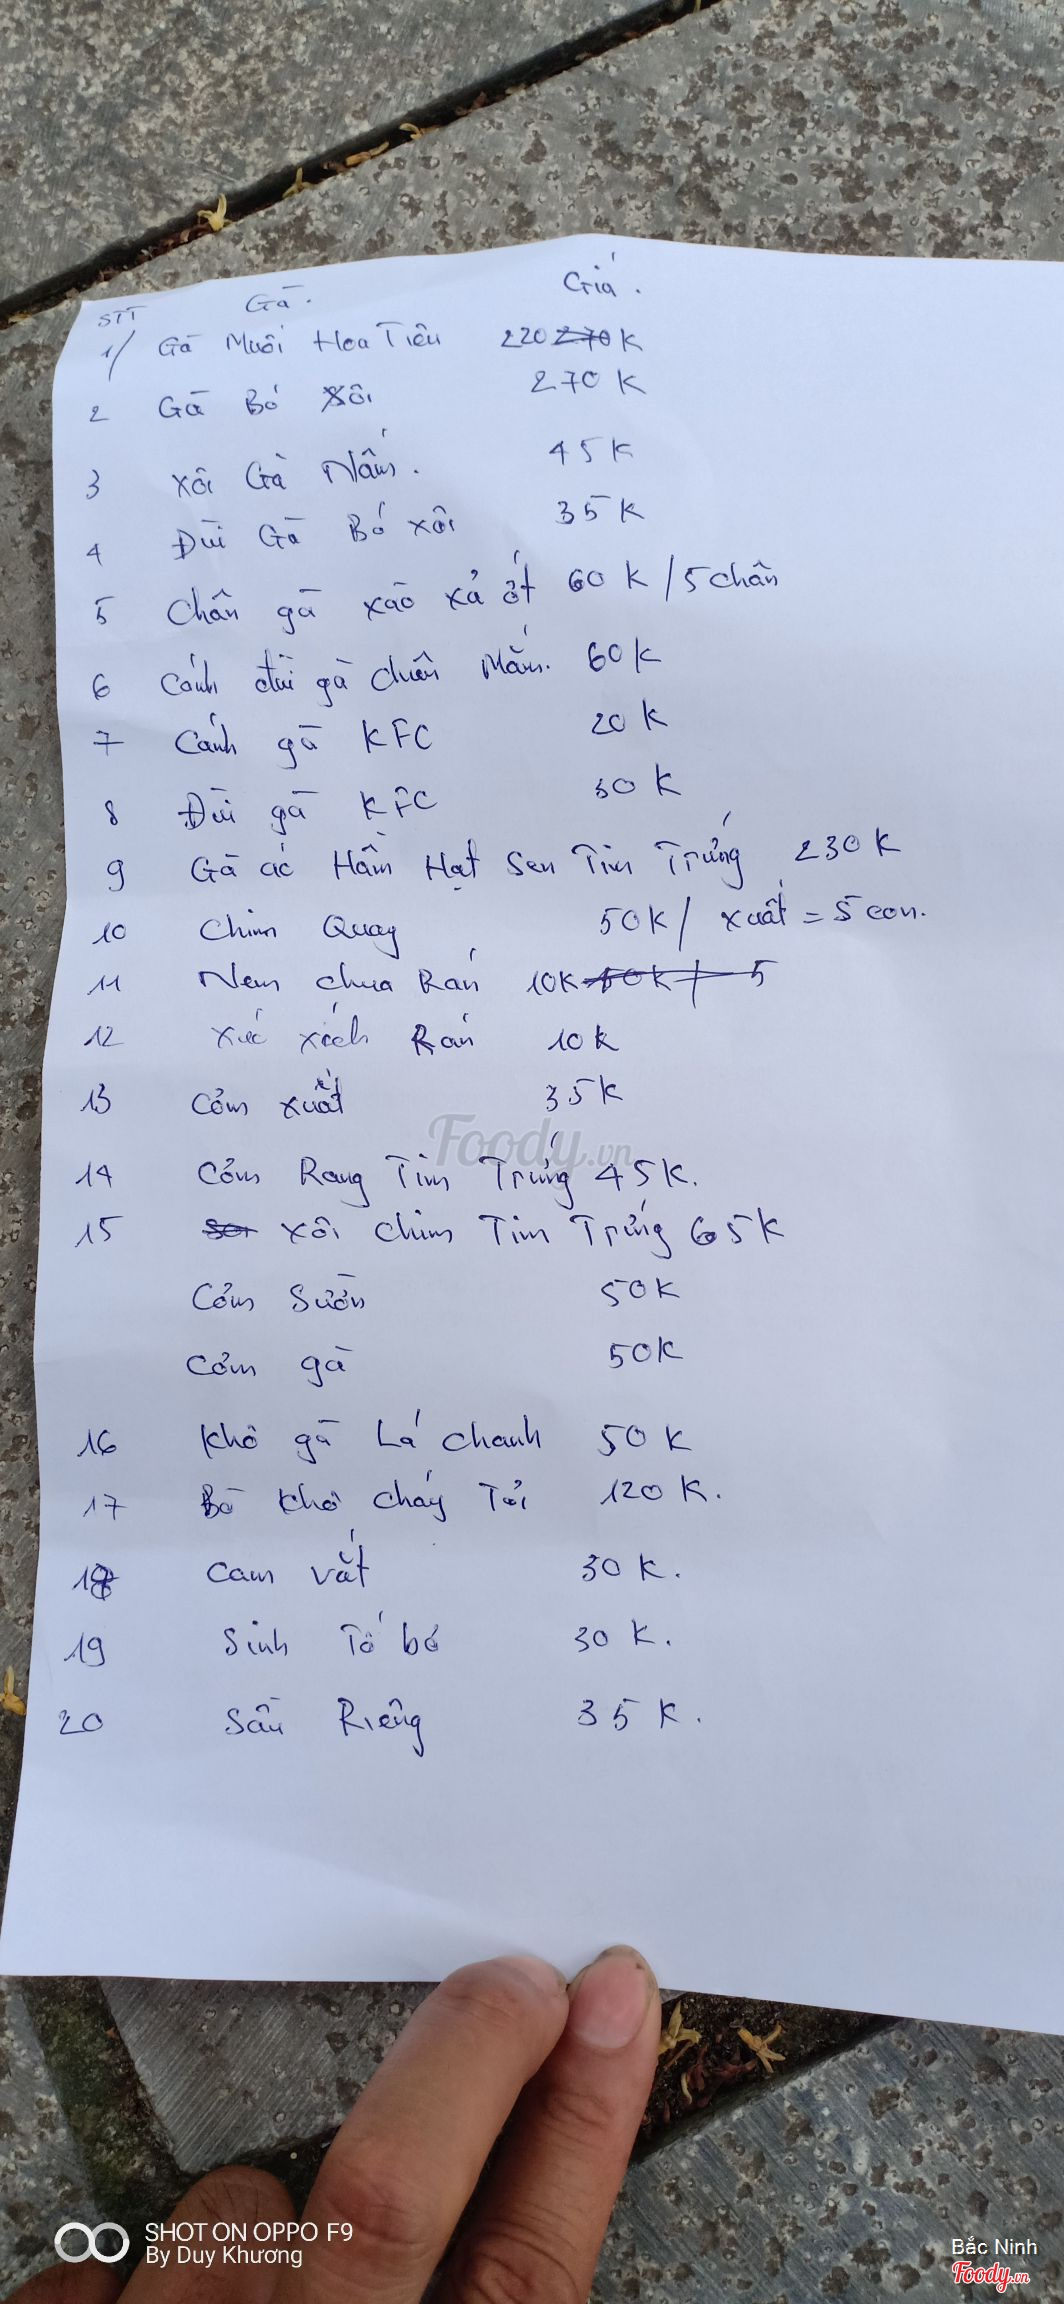 STT Gà. Giá.
1/ Gà Muối Hoa Tiêu 220 270 K
2 Gà Bó Xôi 270 K
3 Xôi Gà Nấm. 45 K
4 Đùi Gà Bó Xôi 35 K
5 Chân gà xào xả ớt 60 K / 5 chân
6 Cánh đùi gà chiên Mắm. 60 K
7 Cánh gà KFC 20 K
8 Đùi gà KFC 30 K
9 Gà ác Hầm Hạt Sen Tim Trứng 230 K
10 Chim Quay 50K / xuất = 5 con.
11 Nem chua Rán 10K 10K / 5
12 Xúc xích Rán 10 K
13 Cơm xuất 35 K
14 Cơm Rang Tim Trứng 45 K.
15 Xôi chim Tim Trứng 65 K
Cơm Sườn 50K
Cơm gà 50K
16 Khô gà Lá chanh 50 K
17 Bò khô cháy Tỏi 120 K.
18 Cam vắt 30 K.
19 Sinh Tố bơ 30 K.
20 Sấu Riêng 35 K.
Foody.vn
SHOT ON OPPO F9
By Duy Khương
Bắc Ninh
Foody.vn